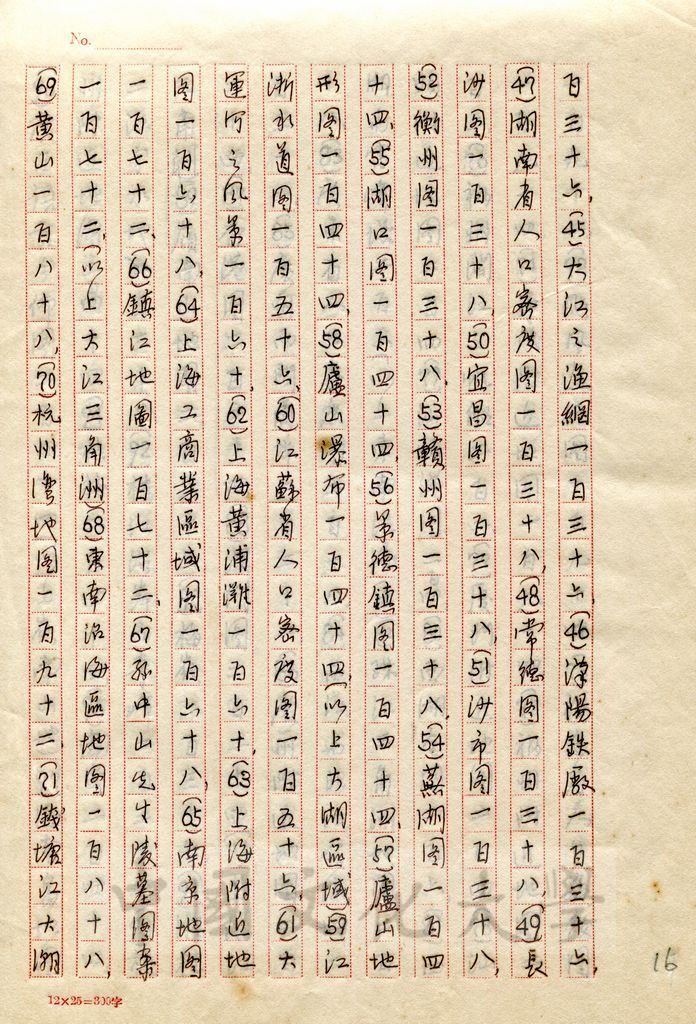 No.
百三十六,(45)大江之漁網一百三十六,(46)漢陽鉄廠一百三十六,
(47)湖南省人口密度图一百三十八,(48)常德图一百三十八,(49)長
沙图一百三十八,(50)宜昌图一百三十八,(51)沙市图一百三十八,
(52)衡州图一百三十八,(53)贛州图一百三十八,(54)蕪湖图一百四
十四,(55)湖口图一百四十四,(56)景德鎮图一百四十四,(57)廬山地
形图一百四十四,(58)廬山瀑布一百四十四,(以上大湖區域(59)江
浙水道图一百五十六,(60)江蘇省人口密度图一百五十六,(61)大
運河之风景一百六十,(62)上海黃浦灘一百六十,(63)上海附近地
图一百六十八,(64)上海工商業區域图一百六十八,(65)南京地图
一百七十二,(66)鎮江地圖一百七十二,(67)孙中山先生陵墓图案
一百七十二,(以上大江三角洲(68)東南沿海區地图一百八十八,
(69)黃山一百八十八,(70)杭州灣地图一百九十二,(71)錢塘江大潮
16
12×25=300字
中國文化大學